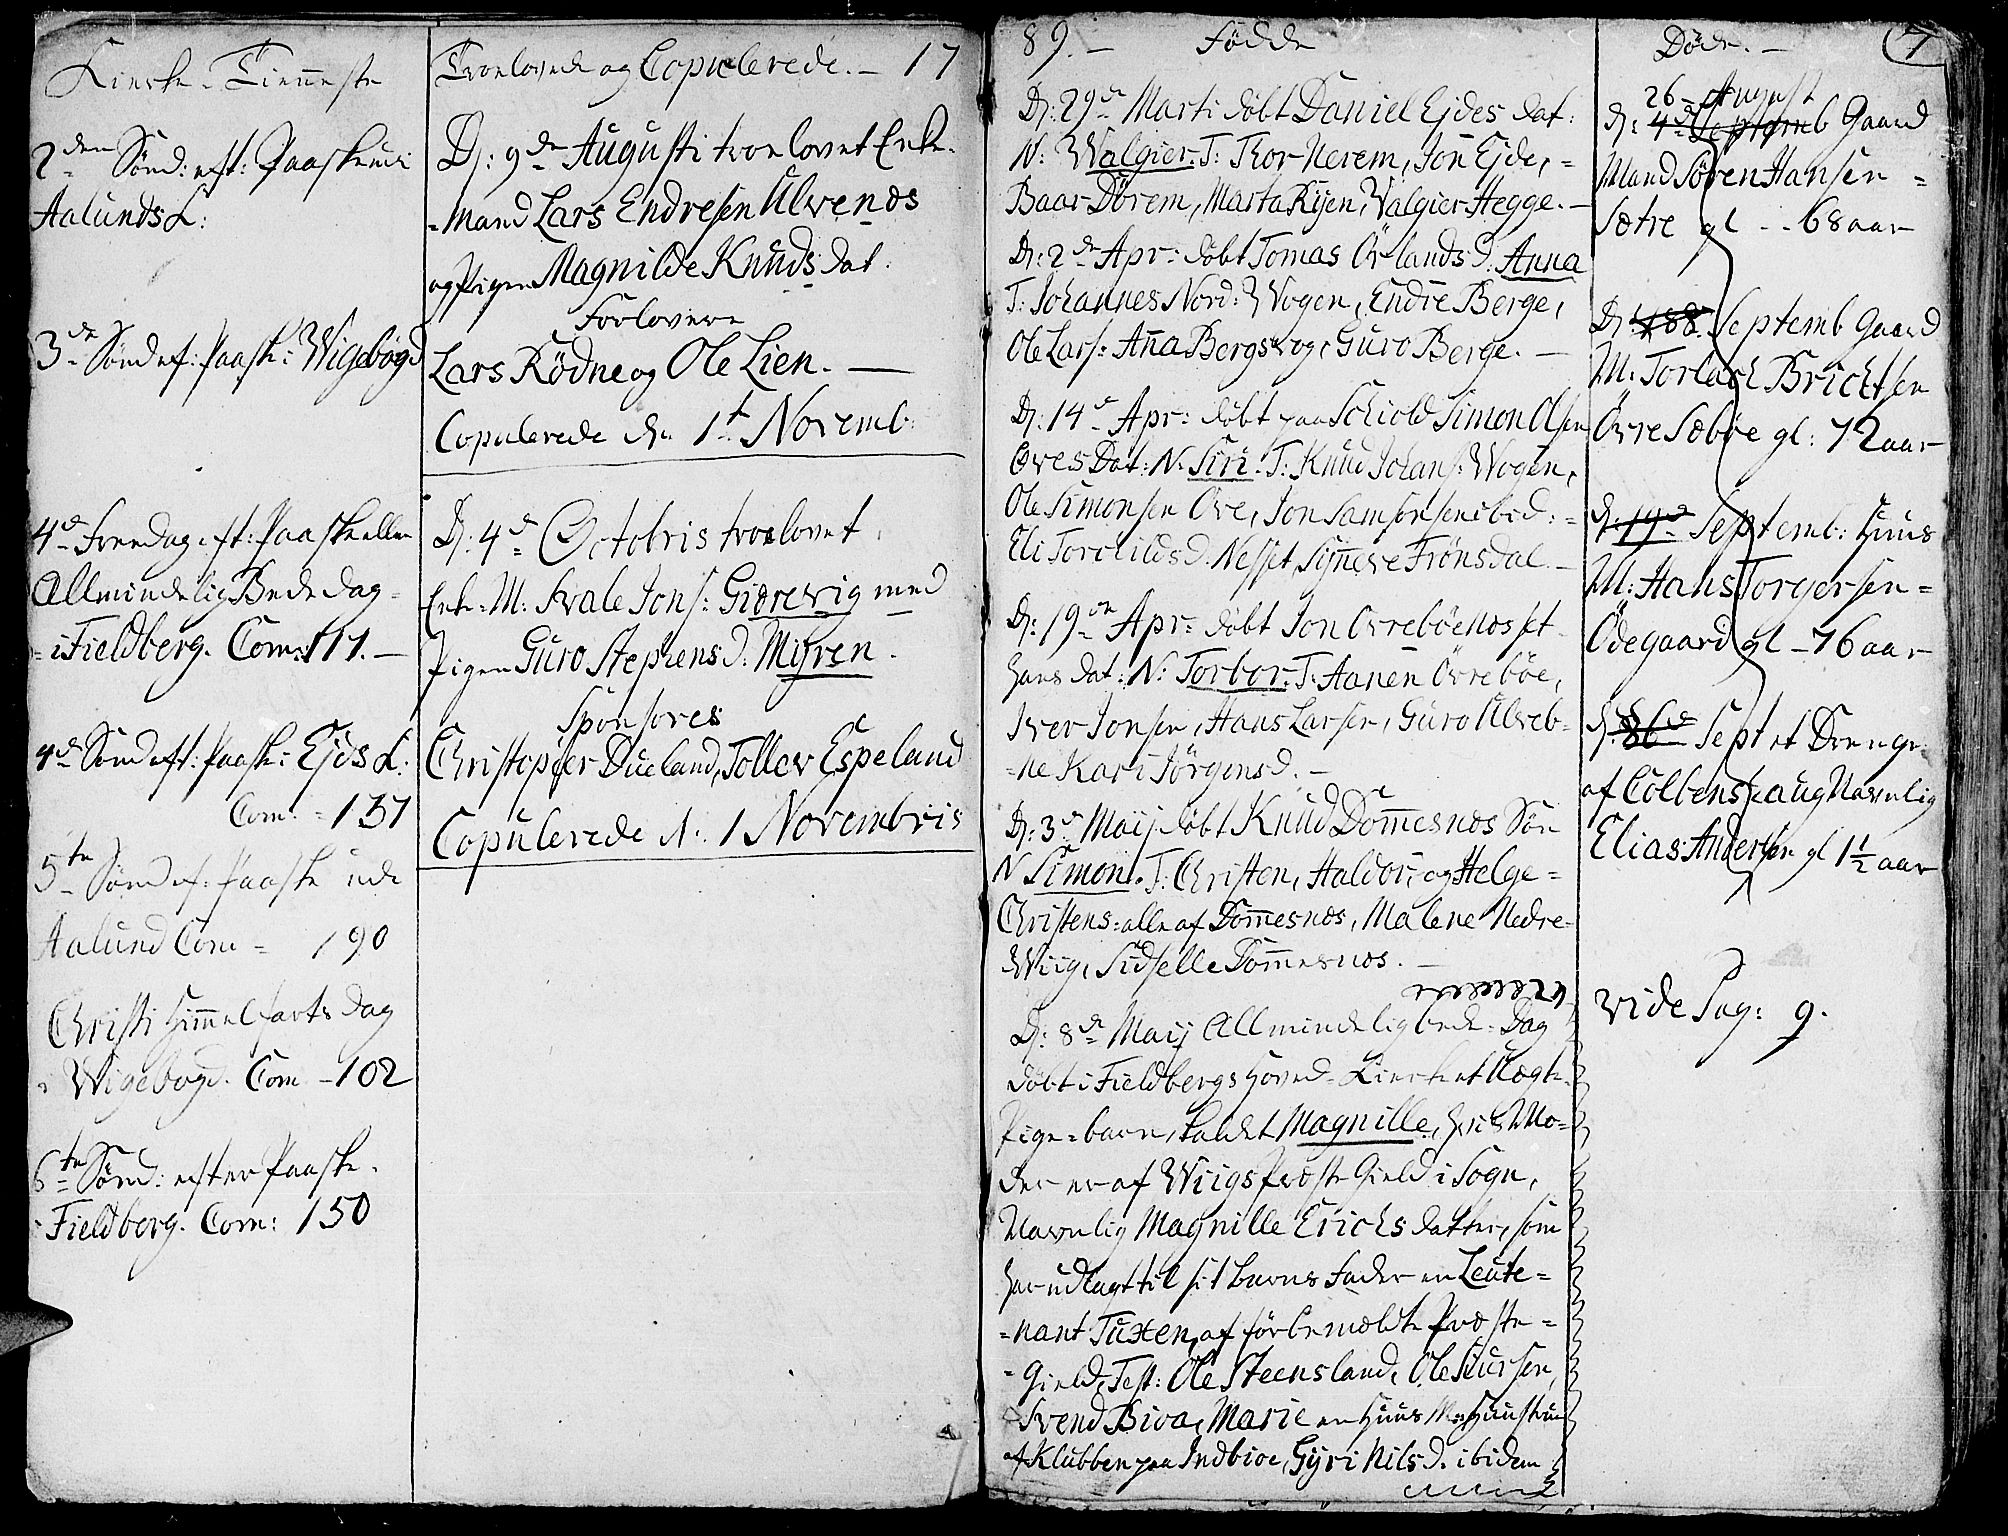 Kirke-Tienneste
2den Sönd: eft: Paaske udi
Aalunds K:
3de Sönd ef: Paaske i Wigebögd
4de Freedag eft: Paaske eller
Allmindelig Bededag
= i Fieldberg. Com: 111. —
4de Sönd eft: Paaske i Ejds K:
Com: = 137
5te Sönd ef: Paaske udi
Aalund Com = 190
Christi Himmelfarts Dag
i Wigebögd. Com - 102
6te Sönd: efter Paaske.
Fieldberg. Com: 150
Troelovede og Copulerede. — 17
D: 9de Augusti troelovet Enke-
-mand Lars Endresen Ulvenæs
og Pigen Magnilde Knuds dat.
Forlovere
Lars Rödne og Ole Lien. —
Copulerede den 1t Novemb:
D: 4de Octobris troelovet
Enke-M: Svale Jons: Giærevig med
Pigen Guro Stephens D. Myren.
Sponsores
Christopher Dueland, Tollev Espeland
Copulerede d: 1 Novembris
89. — Födde
D: 29de Marti döbt Daniel Ejdes dat:
N: Walgier. T: Thor Nerem, Jon Ejde, =
Baar Dörem, Marta Rijen, Valgier Hegge. —
D: 2de Apr: döbt Tomas Örlands D. Anna
T: Johannes Nord: Wogen, Endre Berge,
Ole Lars: Anna Bergs og Guro Berge. —
D: 14de Apr: döbt paa Schiold Simon Olsen
Öves Dat: N: Siri. T: Knud Johans: Wogen,
Ole Simonsen Öve, Jon Samsonsen ibid: =
Eli Torchilds D. Nesset, Synneve Frönsdal. —
D: 19de Apr: döbt Jon Övreböe Nosset
hans dat: N: Torbor. T. Aanen Övreböe,
Iver Jonsen, Hans Larsen, Guro Ulveb-
-ne Kari Jörgens D. —
D: 3de Maij döbt Knud Dommesnæs Sön
N Simon. T: Christen, Haldor, og Helge =
Christens: alle af Dommesnæs, Malene Nedre-
Wiig, Sidselle Dommesnæs. —
D: 8de Maij Allmindelig bede-Dag
döbt i Fieldbergs Hoved-Kirke et Uægte
Pige-barn, kaldet Magnille, hvis Mo-
der er af Wiigs Præste Gield i Sogn,
Navnlig Magnille Erichs datter, som
har udlagt til sit barns Fader en Leute=
=nant Tuxen, af förbemeldte Præste=
-Gield, Test: Ole Steensland, Ole Siursen,
Svend Biva, Marie en Huus M: Huustrue
af Klubben paa Indbioe, Gyri Nils D. ibidem
Döde. — 7
26 August
d: 4de Septemb Gaard
Mand Sören Hansen =
Sætre gl -- 68 aar
D: 188. Septemb Gaard
M: Torlach Brichtsen
Övre Sæböe gl: 72 aar
d: 19de Septemb: Huus
M: Hans Torgersen =
Ödegaard gl - 76 aar
d: 86de Sept et Drenge
af Colbenschaug Navnlig
Elias Andersen gl 1 1/2 aar
vide Pag: 9.